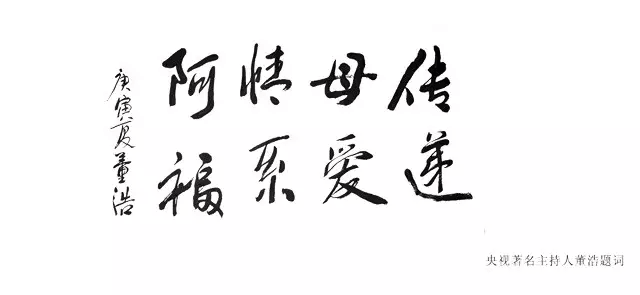 传递
母爱
情系
阿福
庚寅夏董浩
央视著名主持人董浩题词